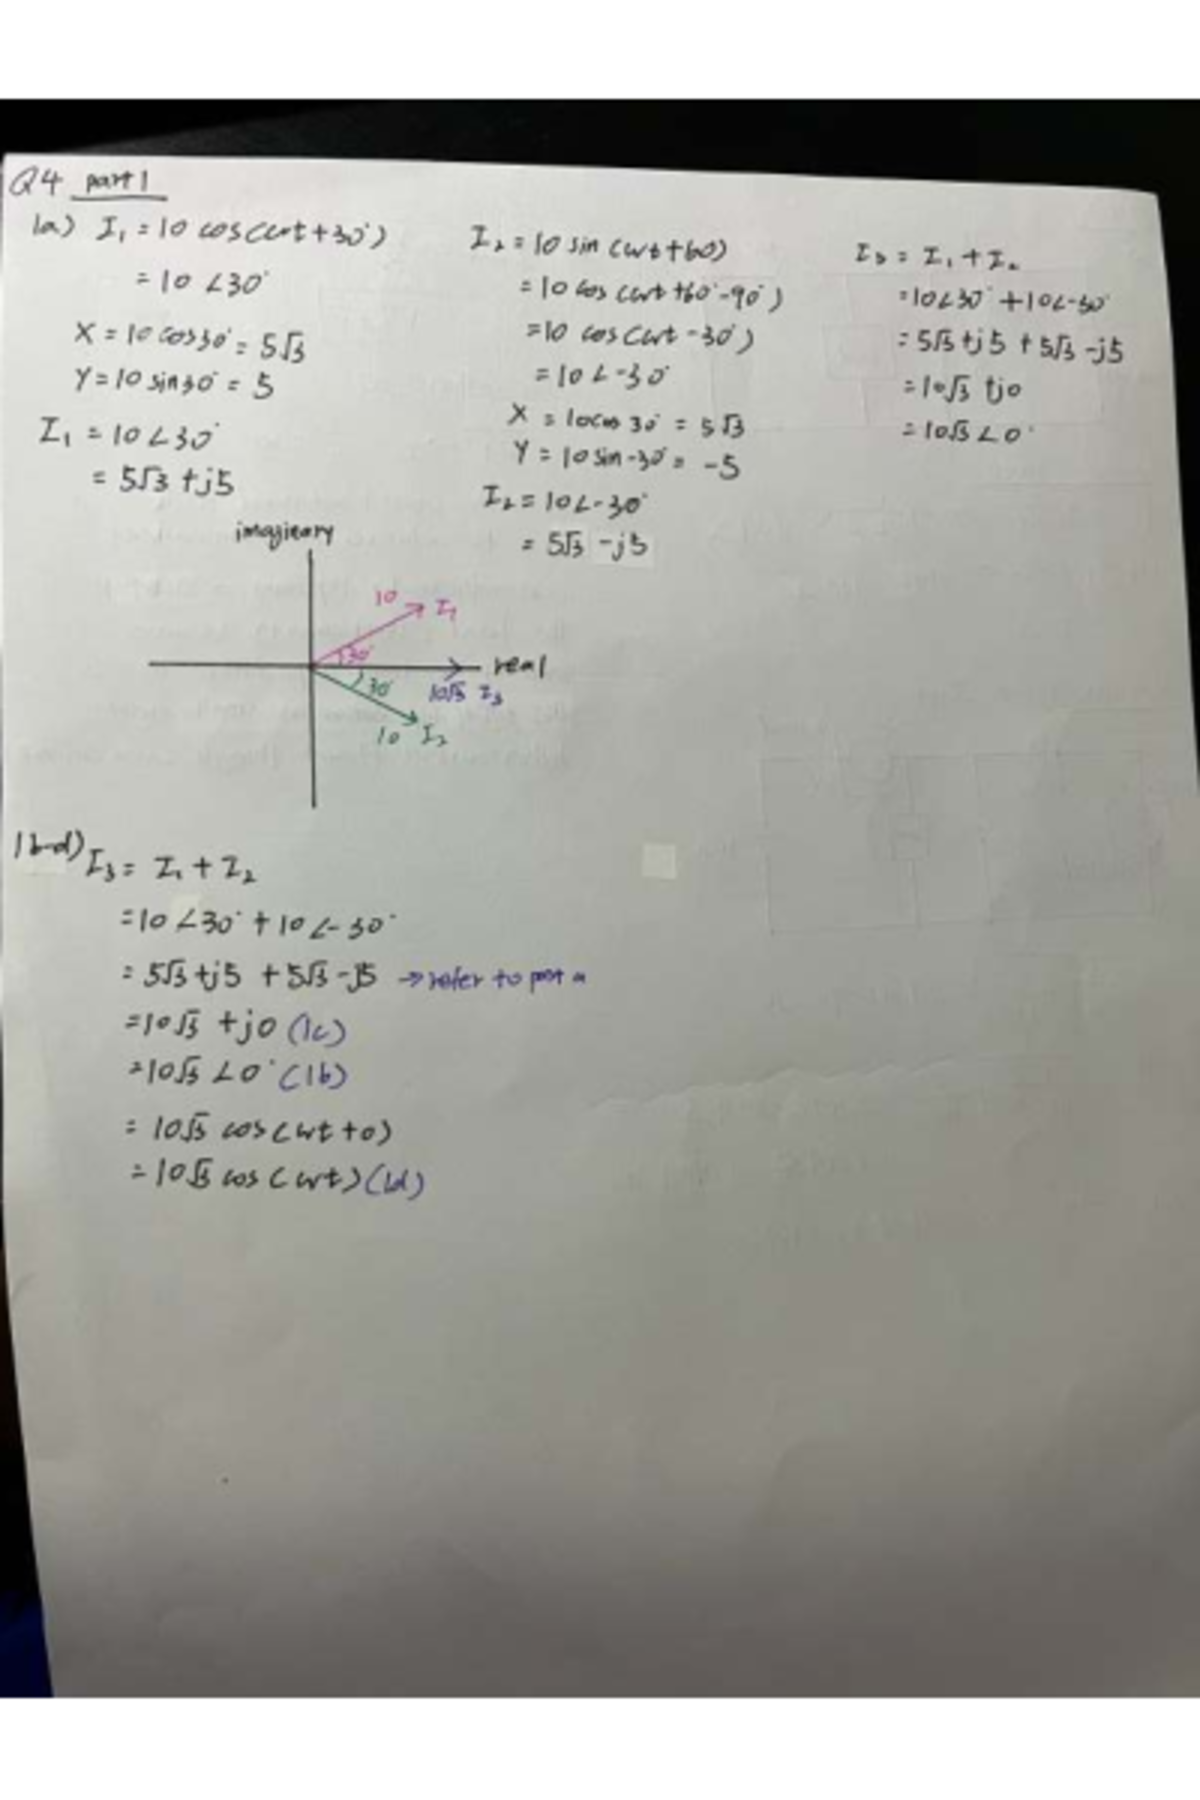 Q4 part 1
1a) I₁ = 10 cos(wt+30°)
= 10∠30°
X = 10 cos30° = 5√3
Y = 10 sin30° = 5
I₁ = 10∠30°
= 5√3 +j5
I₂ = 10 sin (wt+60)
= 10 cos (wt +60°-90°)
=10 cos (wt -30°)
= 10∠-30°
X = 10cos 30° = 5√3
Y = 10 sin-30° = -5
I₂ = 10∠-30°
= 5√3 -j5
I₃ = I₁ + I₂
=10∠30° +10∠-30°
= 5√3 +j5 +5√3 -j5
= 10√3 +j0
= 10√3∠0°
imagieary
10 I₁
30°
real
30°
10√3 I₃
10 I₂
1b-d) I₃ = I₁ + I₂
=10∠30° + 10∠-30°
= 5√3 +j5 +5√3 -j5 → refer to part a
=10√3 +j0 (1c)
=10√3∠0° (1b)
= 10√3 cos (wt +0)
= 10√3 cos (wt) (1d)